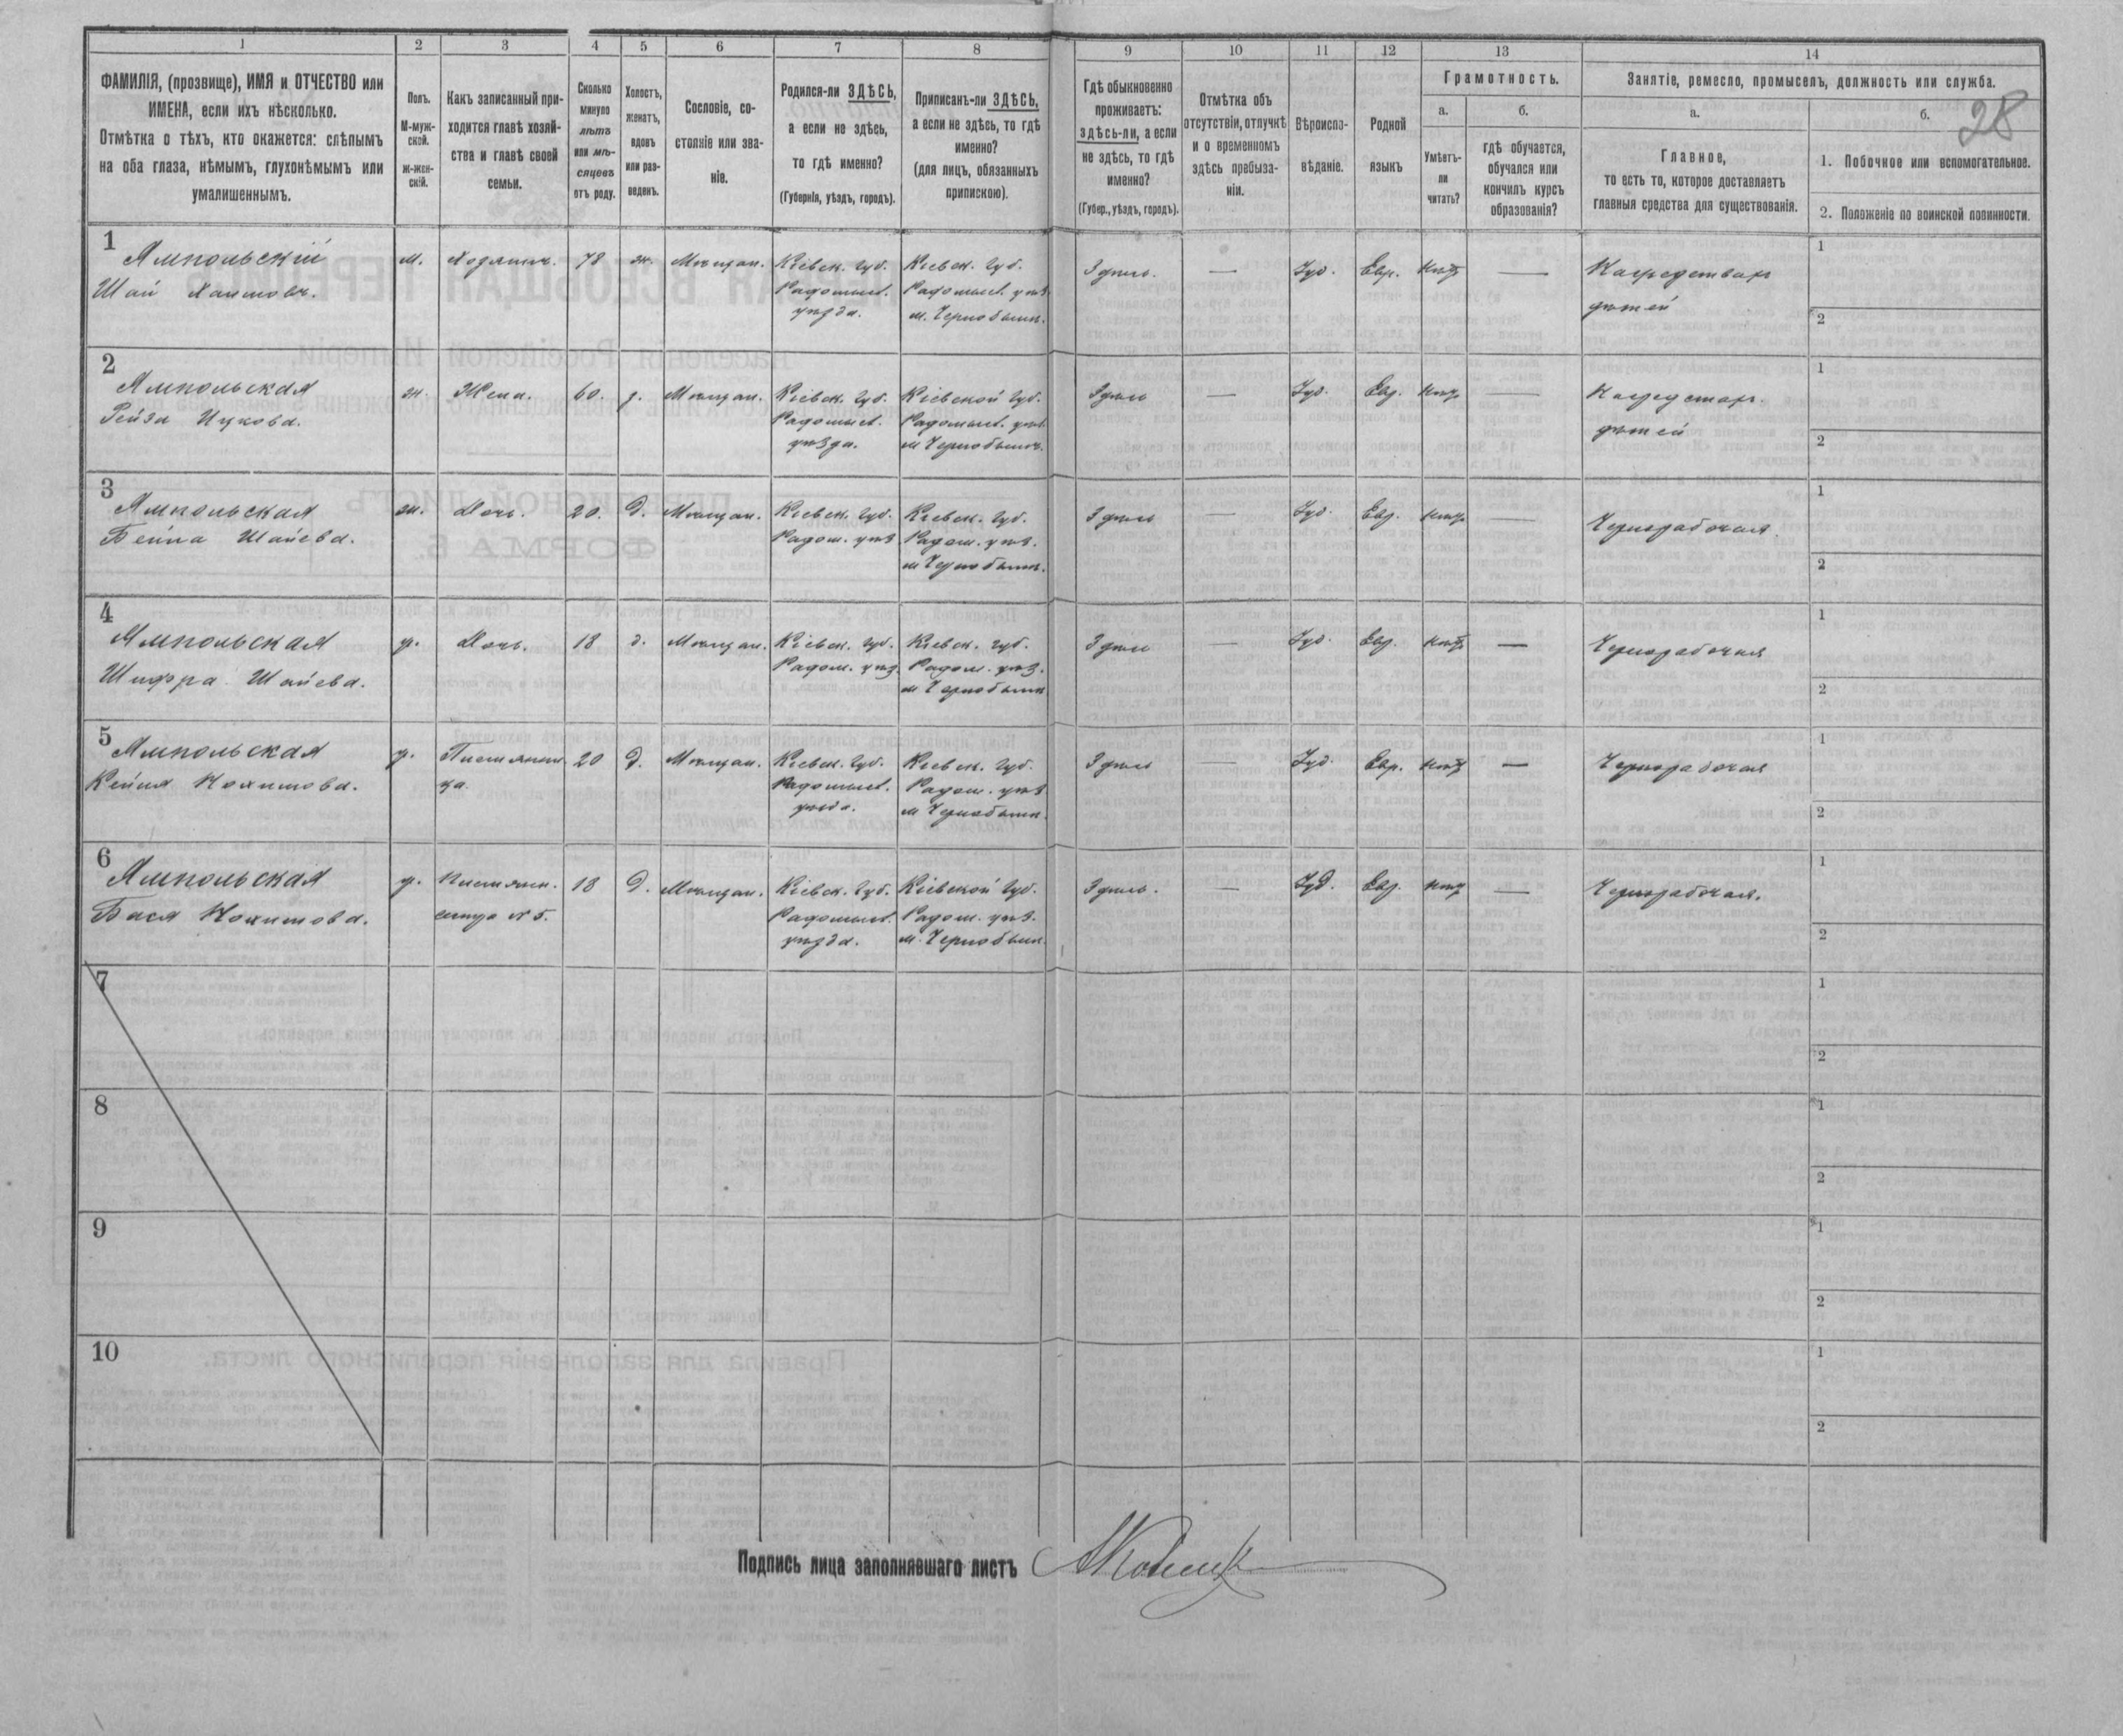 1 2 3 4 5 6 7 8 9 10 11 12 13 14
ФАМИЛІЯ, (прозвище), ИМЯ и ОТЧЕСТВО или
ИМЕНА, если ихъ нѣсколько.
Отмѣтка о тѣхъ, кто окажется: слѣпымъ
на оба глаза, нѣмымъ, глухонѣмымъ или
умалишеннымъ.
Полъ.
М-муж-
ской.
ж-жен-
скій.
Какъ записанный при-
ходится главѣ хозяй-
ства и главѣ своей
семьи.
Сколько
минуло
лѣтъ
или мѣ-
сяцевъ
отъ роду.
Холостъ,
женатъ,
вдовъ
или раз-
веденъ.
Сословіе, со-
стояніе или зва-
ніе.
Родился-ли ЗДѢСЬ,
а если не здѣсь,
то гдѣ именно?
(Губернія, уѣздъ, городъ).
Приписанъ-ли ЗДѢСЬ,
а если не здѣсь, то гдѣ
именно?
(для лицъ, обязанныхъ
припискою).
Гдѣ обыкновенно
проживаетъ:
здѣсь-ли, а если
не здѣсь, то гдѣ
именно?
(Губер., уѣздъ, городъ).
Отмѣтка объ
отсутствіи, отлучкѣ
и о временномъ
здѣсь пребыва-
ніи.
Вѣроиспо-
вѣданіе.
Родной
языкъ
Грамотность.
а.
Умѣетъ-
ли
читать?
б.
гдѣ обучается,
обучался или
кончилъ курсъ
образованія?
Занятіе, ремесло, промыселъ, должность или служба.
а.
Главное,
то есть то, которое доставляетъ
главныя средства для существованія.
б.
28
1. Побочное или вспомогательное.
2. Положеніе по воинской повинности.
1
Ямпольскій м. Хозяинъ. 78 ж. Мѣщан. Кіевск. губ. Кіевск. губ. Здѣсь. — Іуд. Евр. нѣтъ — На средствахъ
Шай Хаимовъ. Радомысл. Радомысл. уѣз. дѣтей
уѣзда. м. Чернобыль.
1
2
2
Ямпольская ж. Жена. 60. з. Мѣщан. Кіевск. губ. Кіевской губ. Здѣсь — Іуд. Евр. нѣтъ На средствах.
Рейза Ицкова. Радомысл. Радомысл. уѣз. дѣтей
уѣзда. м Чернобыль.
1
2
3
Ямпольская ж. Дочь. 20. д. Мѣщан. Кіевск. губ. Кіевск. губ. Здѣсь — Іуд. Евр. нѣтъ — Чернорабочая.
Бейла Шаева. Радом. уѣз Радом. уѣз.
м Чернобыль.
1
2
4
Ямпольская Дочь. 18 д. Мѣщан. Кіевск. губ. Кіевск. губ. Здѣсь — Іуд. Евр. нѣтъ — Чернорабочая
Шифра Шаева. Радом. уѣз. Радом. уѣз.
м Чернобыль
1
2
5
Ямпольская Племянни 20 д. Мѣщан. Кіевск. губ. Кіевск. губ. Здѣсь — Іуд. Евр. нѣтъ — Чернорабочая
Нохимова. ца. Радомысл. Радом. уѣз
уѣзда. м Чернобыль.
1
2
6
Ямпольская Племян. 18 д. Мѣщан. Кіевск. губ. Кіевской губ. Здѣсь. — Іуд. Евр. нѣтъ — Чернорабочая.
Бася Нохимова. сестра № 5. Радомысл. Радом. уѣз.
уѣзда. м. Чернобыль.
1
2
7
1
2
8
1
2
9
1
2
10
1
2
Подпись лица заполнявшаго листъ